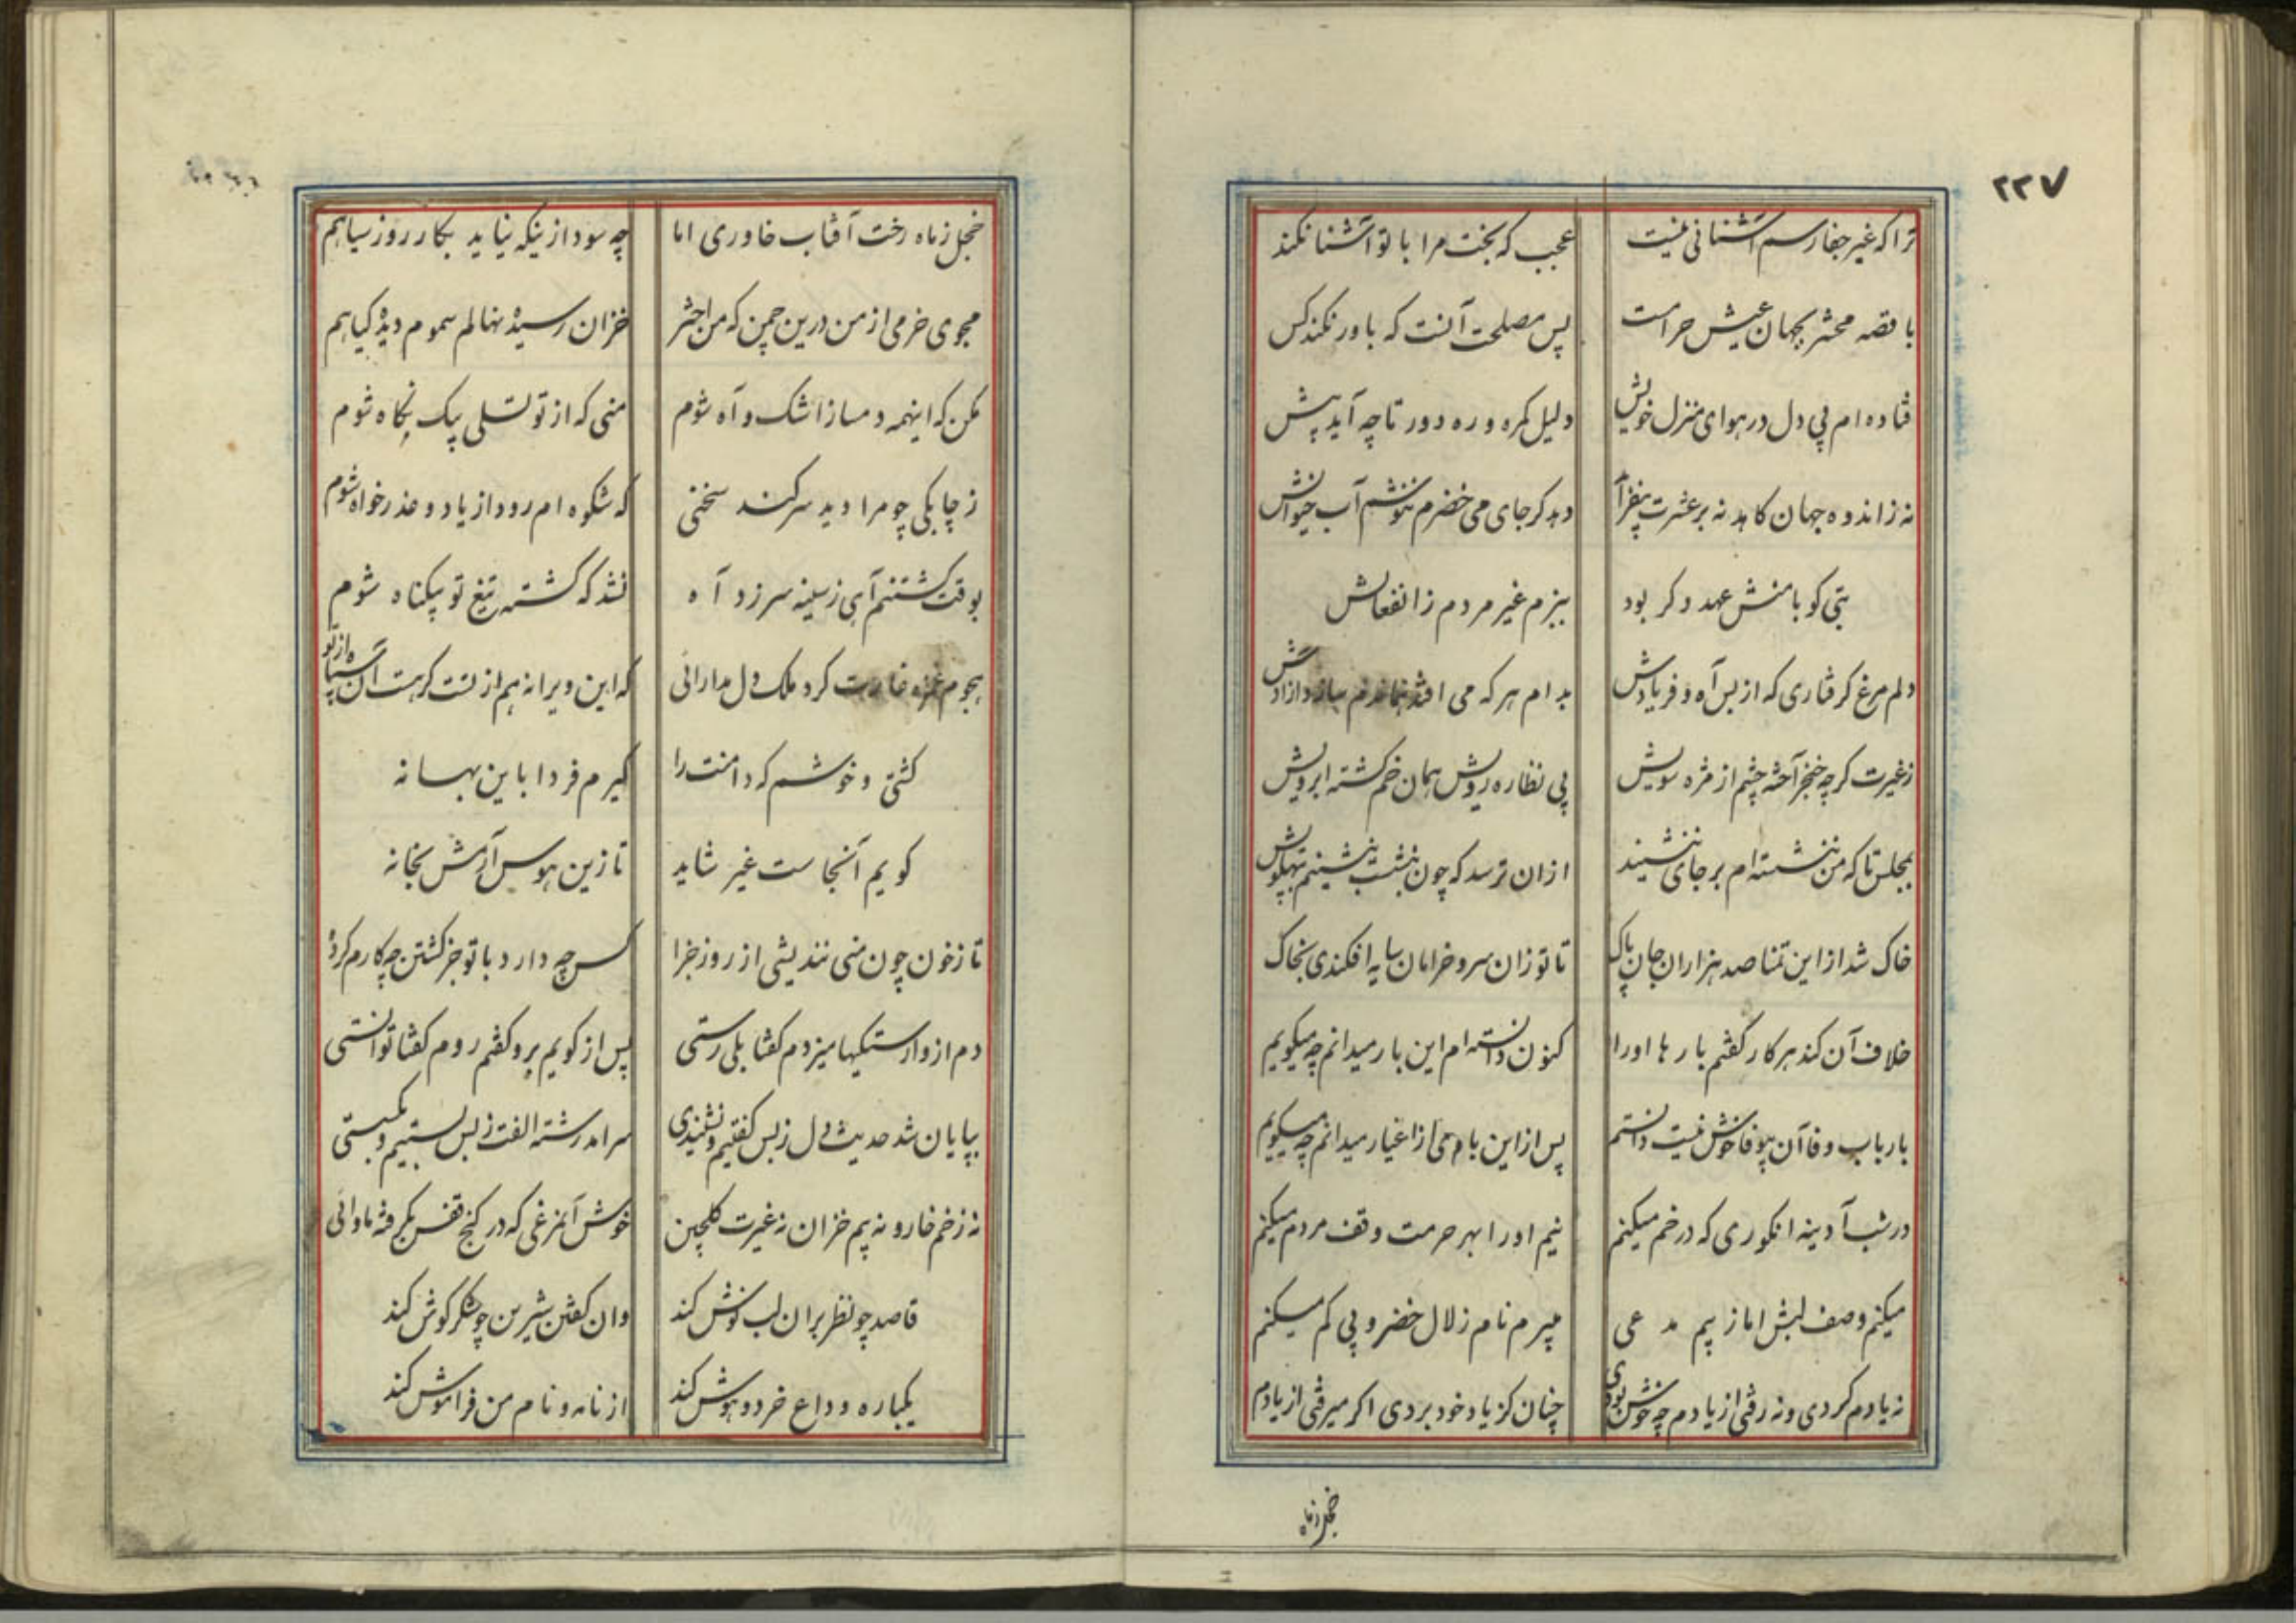 ۲۲۷
ترا که غیر جفا رسم آشنائی نیست عجب که بخت مرا با تو آشنا نکند
با قصه محشر بجهان عیش حرامست پس مصلحت آنست که باور نکند کس
فتاده ام پی دل در هوای منزل خویش دلیل گمره و ره دور تا چه آید پیش
نه ز اندوه جهان کاهد نه بر عشرت بیفزاید دهد گر جای می خضرم ننوشم آب حیوانش
بتی کو با منش عهد دگر بود ببزم غیر مردم ز انفعالش
دلم مرغ گرفتاری که از بس آه و فریادش بدام هر که می افتد هماندم سازد آزادش
ز غیرت گر چه خنجر آخته چشم از مژه سویش پی نظاره رویش همان خم گشته ابرویش
بمجلس تا که من ننشسته ام بر جای ننشیند از آن ترسد که چون بنشست بنشینم بپهلویش
خاک شد از این تمنا صد هزاران جان پاک تا تو زان سرو خرامان سایه افکندی بخاک
خلاف آن کند هر کار گفتم بارها او را کنون دانسته ام این بار میدانم چه میگویم
بارباب وفا آن بیوفا خوش نیست دانستم پس از این با وی از اغیار میدانم چه میگویم
در شب آدینه انگوری که در خم میکنم نیم او را بهر حرمت وقف مردم میکنم
میکنم وصف لبش اما ز بیم مدعی میبرم نام زلال خضر و پی گم میکنم
نه یادم کردی و نه رفتی از یادم چه خوش بودی چنان کز یاد خود بردی اگر میرفتی از یادم
خجل زماه
خجل زماه رخت آفتاب خاوری اما چه سود ازینکه نیاید بکار روز سیاهم
مجوی خرمی از من درین چمن که من اختر خزان رسیده نهالم سموم دیده گیاهم
مکن که اینهمه دمساز اشک و آه شوم منی که از تو تسلی بیک نگاه شوم
ز چابکی چو مرا دید سر کند سخنی که شکوه ام رود از یاد و عذر خواه شوم
بوقت کشتنم آهی ز سینه سر زد آه نشد که کشته تیغ تو بیگناه شوم
هجوم غمزه غارت کرد ملک دل مدارائی که این ویرانه هم از تست گر هست آن سپاه از تو
کشتی و خوشم که دامنت را گیرم فردا باین بهانه
گویم آنجاست غیر شاید تا زین هوس آرمش بخانه
تا ز خون چون منی نندیشی از روز جزا کس چه دارد با تو جز کشتن چه کارم کرده
دم از وارستگیها میزدم گفتا بلی رستی پس از کویم برو گفتم روم گفتا توانستی
بپایان شد حدیث دل ز بس گفتیم و نشنیدی سر آمد رشته الفت ز بس بستیم و بگسستی
نه زخم خار و نه بیم خزان نه غیرت گلچین خوش آنمرغی که در کنج قفس بگرفته ماوائی
قاصد چو نظر بر آن لب نوش کند وان گفتن شیرین چو شکر گوش کند
یکباره وداع خرد و هوش کند از نامه و نام من فراموش کند